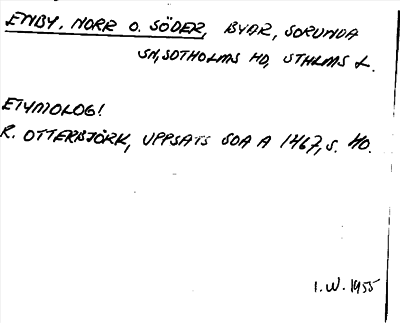 ENBY, NORR O. SÖDER, BYAR, SORUNDA
SN, SOTHOLMS HD, STHLMS L.
ETYMOLOGI
R. OTTERBJÖRK, UPPSATS SOA A 1467, S. 40.
I.W. 1955